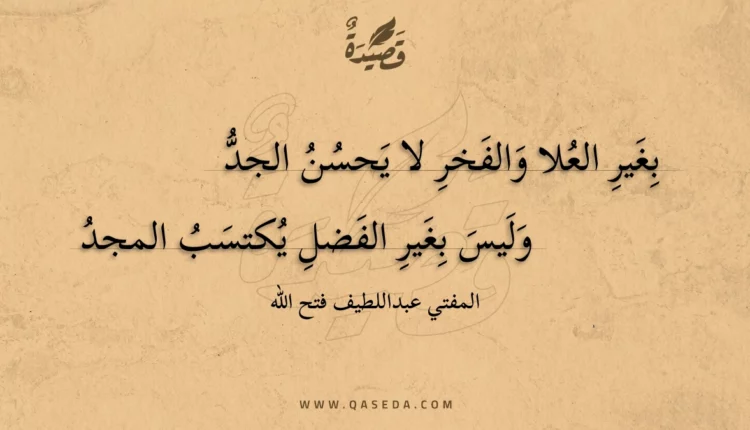 قَصِيْدَةٌ
بِغَيرِ العُلا وَالفَخرِ لا يَحسُنُ الجدُّ
وَلَيسَ بِغَيرِ الفَضلِ يُكتسَبُ المجدُ
المفتي عبداللطيف فتح الله
WWW.QASEDA.COM